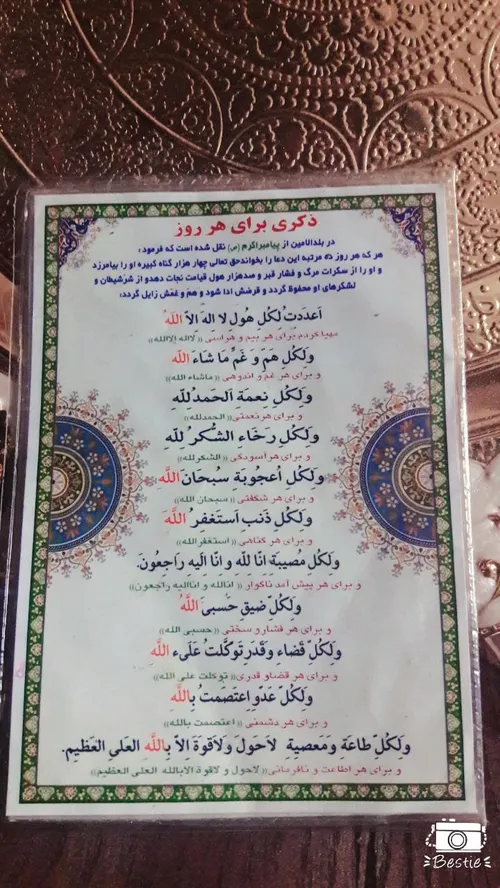 ذکری برای هر روز
در بلدالامین از پیامبراکرم (ص) نقل شده است که فرمود:
هر که هر روز ده مرتبه این دعا را بخواندحق تعالی چهار هزار گناه کبیره او را بیامرزد
و او را از سکرات مرگ و فشار قبر و صدهزار هول قیامت نجات دهدو از شرشیطان و
لشکرهای او محفوظ گردد و قرضش ادا شود و هم و غمش زایل گردد:
اَعدَدتُ لِکُلِ هَولِ لا اِلهَ اِلاّ اللهُ
مهیا کردم برای هر بیم و هراسی ((لااله الاالله))
وَلِکُلِ هَمّ وَ غَمِّ مَا شاءَ اللهُ
و برای هر غم و اندوهی ((ماشاء الله))
وَلِکُلِ نِعمَة اَلحَمدُ لِلّهِ
و برای هر نعمتی ((الحمدلله))
وَلِکُلِ رخَاءِ الشُّکرُ لِلّهِ
و برای هر آسودگی ((الشکر لله))
وَلِکُلِ اُعجُوبَة سُبحَانَ اللَّهِ
و برای هر شگفتی ((سبحان الله))
وَلِکُلِ ذَنب اَستَغفرُ اللَّهَ
و برای هر گناهی ((استغفرالله))
وَلِکُل مُصیبَة اِنّا لِلّهِ وِ اِنّا اِلَیهِ رَاجِعُونَ.
و برای هر پیش آمد ناگوار ((انالله و اناالیه راجعون))
وَلِکُلِّ ضیقِ حَسبیَ اللَّهُ
و برای هر فشار و سختی ((حسبی الله))
وَلِکُلِّ قَضاءِ وَ قَدَرِ تَوَکَّلتُ عَلَیء اللَّهِ
و برای هر قضا و قدری ((توکلت علی الله))
وَلِکُلِ عَدُوِّ اِعتَصَمتُ بِاللَّهِ
و برای هر دشمنی ((اعتصمت بالله))
وَلِکُلِّ طاعَةِ وَمَعصیَةِ لاحَولَ وَلاقوةَ اِلاّ بِاللَّهِ العَلیِ العَظیِم.
و برای هر اطاعت و نافرمانی ((لاحول و لاقوة الابالله العلی العظیم))
Bestie